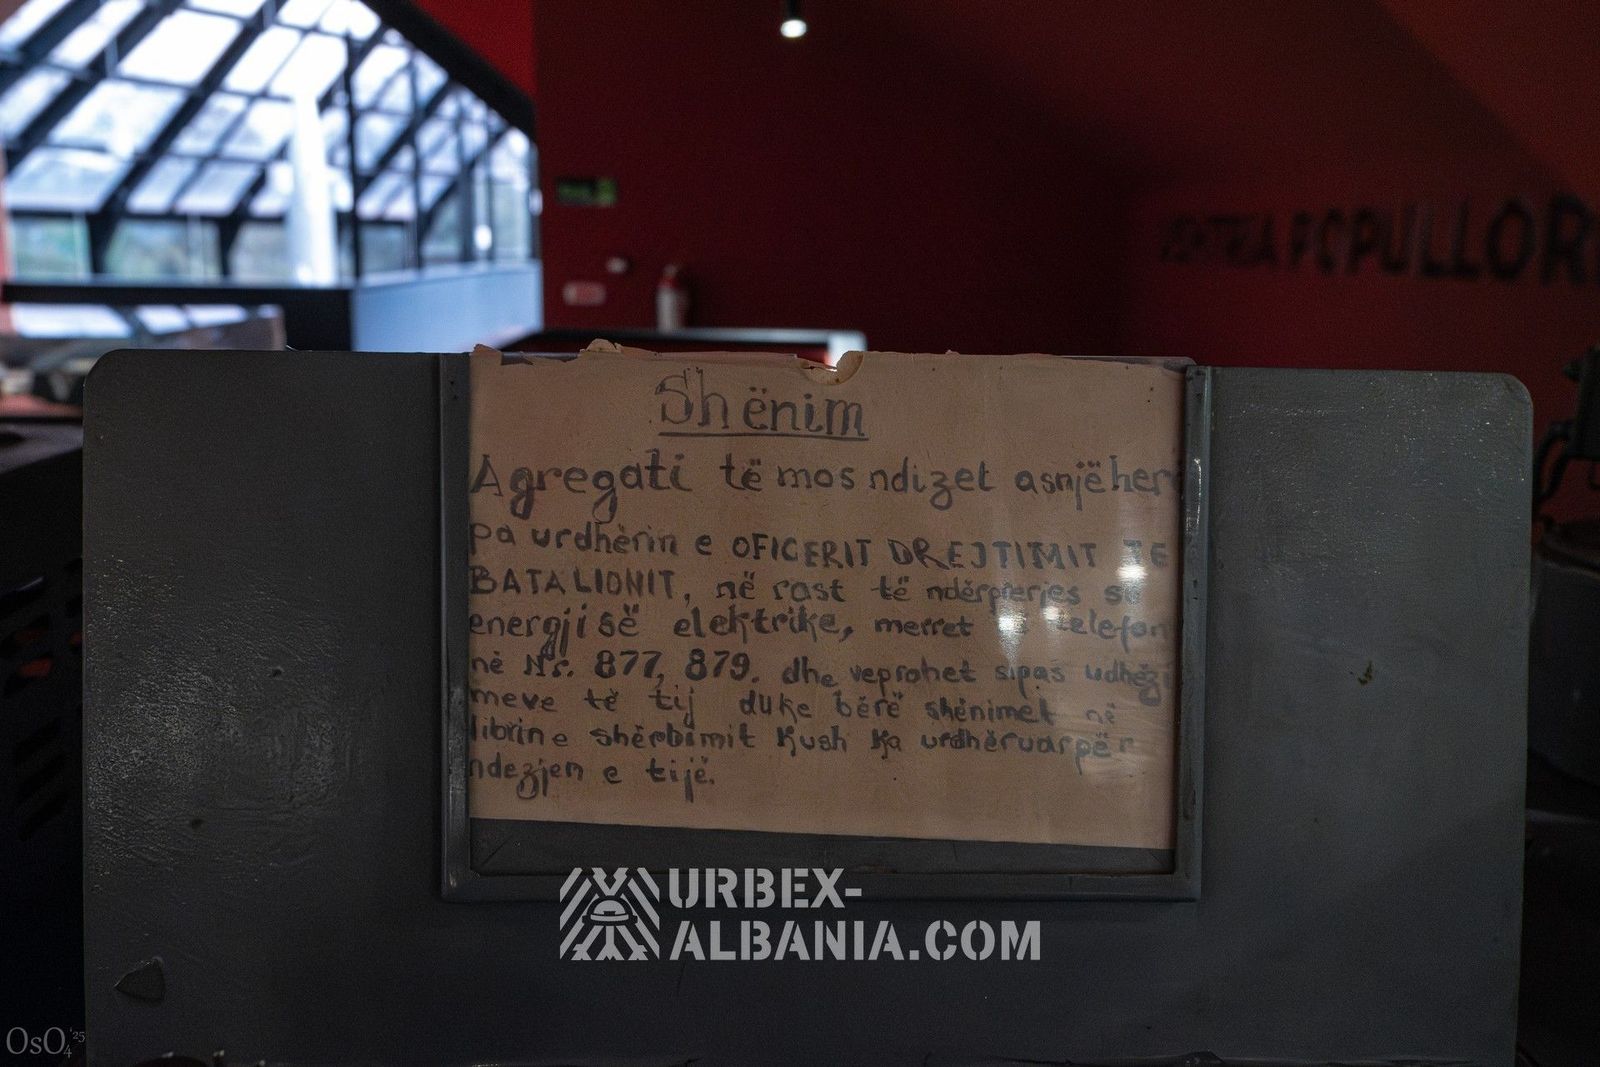 Shënim
Agregati të mos ndizet asnjëher
pa urdhërin e OFICERIT DREJTIMIT TE
BATALIONIT, në rast të ndërprerjes së
energjisë elektrike, merret telefon
në Nr. 877, 879. dhe veprohet sipas udhëzi
meve të tij duke bërë shënimet në
librin e shërbimit Kush ka urdhëruar për
ndezjen e tijë.
POPULLOR
URBEX-
ALBANIA.COM
OsO4 '25